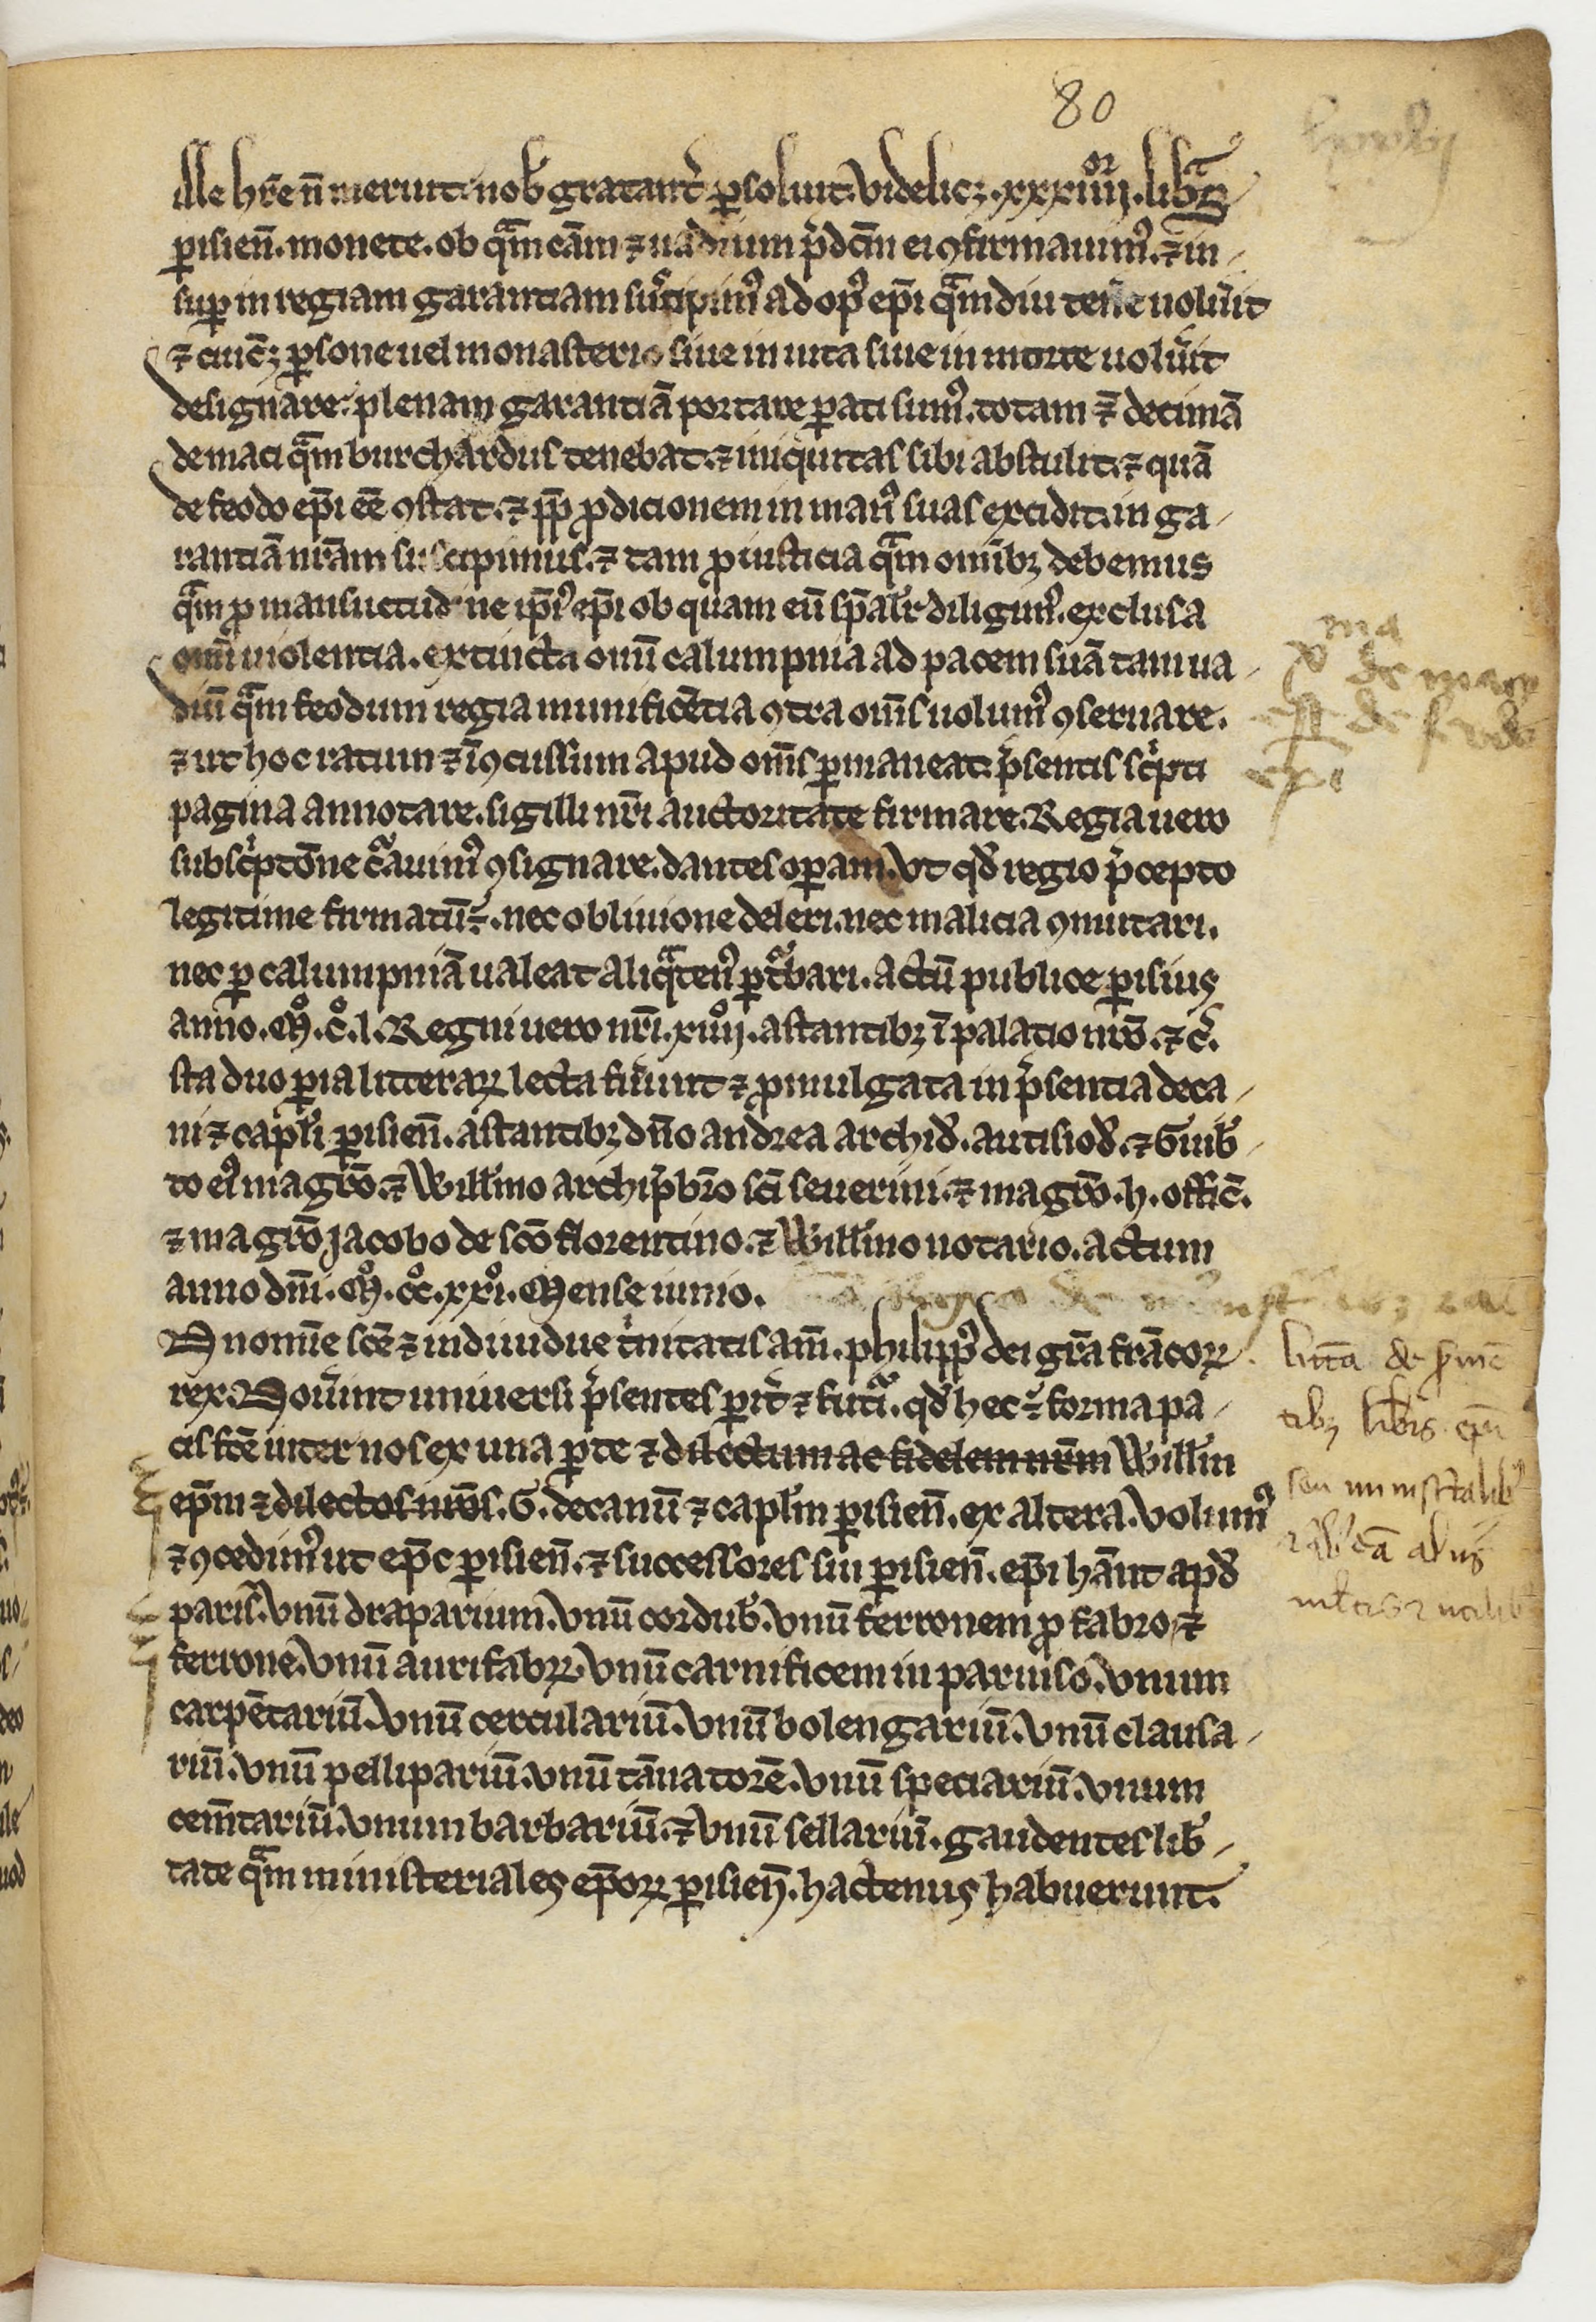 80
ille hr̄e n̄ meruit. nob̾ gratant̾ ꝑsoluit. videlicꝫ .xxxiiij.or libͣꝝ
ꝑisien̄. monete. ob qͣm cām ⁊ uadium p̄dc̄m ei ꝯfirmauimꝰ. ⁊ in-
suꝑ in regiam garantiam suscipimꝰ ad opꝰ ep̄i qͣmdiu ten̾e uolu̾it
⁊ cuicꝫ ꝑsone uel monasterio siue in uita siue in morte uolu̾it
designare. plenam garantiā portare parati sumꝰ. totam ⁊ decimā
de maci qͣm burchardus tenebat. ⁊ iniquitas sibi abstulit. ⁊ quā
de feodo ep̄i eē ꝯstat. ⁊ ꝓp̄ ꝓdicionem in manꝰ suas excidit. in ga-
rantiā nrām suscipimus. ⁊ tam ꝓ iusticia qͣm om̄ibꝫ debemus
qͣm ꝓ mansuetudine ip̄iꝰ ep̄i ob quam eū sp̄alit̾ diligimꝰ. exclusa
om̄i uiolentia. extincta om̄i calumpnia ad pacem suā tam ua-
diū qͣm feodum regia munificētia ꝯtra om̄s uolumꝰ ꝯseruare.
⁊ ut hoc ratum ⁊ īꝯcussum apud om̄s ꝑmaneat. p̄sentis scͥpti
pagina annotare. sigilli nr̄i auctoritate firmare. Regia uero
subscͥptōne cͣuimꝰ ꝯsignare. dantes oꝑam. vt qd̾ regio p̄cepto
legitime firmatū ÷. nec obliuione deleri. nec malicia ꝯmutari.
nec ꝑ calumpniā ualeat aliqͣtenꝰ ꝑt̾bari. actū publice ꝑisius
anno. m̊. c̊. l. Regni uero nr̄i. xiiij̊. astantibꝫ ī palatio nr̄o. ⁊ c̾.
sta duo ꝑia litterarꝝ lecta fu̾unt ⁊ ꝓmulgata in p̄sentia deca-
ni ⁊ capl̾i ꝑisien̄. astantibꝫ dn̄o andrea archid̾. autisiod̾. ⁊ Guib̾-
to eiꝰ magr̄o. ⁊ Will̾mo archip̄br̄o sc̄i seuerini. ⁊ magr̄o. h. offic̄.
⁊ magr̄o jacobo de sc̄o florentino. ⁊ Will̾mo notario. actum
anno dn̄i. m̊. cc̊. xxi̊. Mense iunio.
In nomīe sc̄e ⁊ indiuidue tͥnitatis am̄. philippꝰ dei gr̄a frācoꝝ
rex. Nou̾int uniuersi p̄sentes parit̾ ⁊ futͥ. qd̾ hec ÷ forma pa-
cis fc̄e inter nos ex una ꝑte ⁊ dilectum ac fidelem nr̄m Will̾m
ep̄m ⁊ dilectos nr̄os. G. decanū ⁊ capl̾m ꝑisien̄. ex altera. volumꝰ
⁊ ꝯcedimꝰ ut ep̄c ꝑisien̄. ⁊ successores sui ꝑisien̄. ep̄i hāant apd̾
paris̾. vnū draparium. vnū cordub̾. vnū ferronem ꝓ fabro ⁊
ferrone. vnū aurifabꝝ. vnū carnificem in paruiso. vnum
carpētariū. vnū cerculariū. vnū bolengariū. vnū clausa-
riū. vnū pelliparium. vnū tānatorē. vnū speciariū. vnum
cem̄tariū. vnum barbariū. ⁊ vnū sellariū. gaudentes lib̾-
tate qͣm ministeriales ep̄oꝝ ꝑisien̄. hactenus habuerunt.
xͫᵃ de macy
est de feodo
epi
litt̄a de s̾uiē
tibꝫ lib̾is ep̄i
seu minist̾alibꝰ